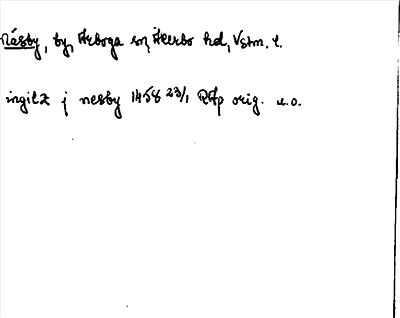 Näsby, by, Arboga sn, Åkerbo hd, Vstm. l.
ingilz j nesby 1458 23/1 RAp orig. u.o.